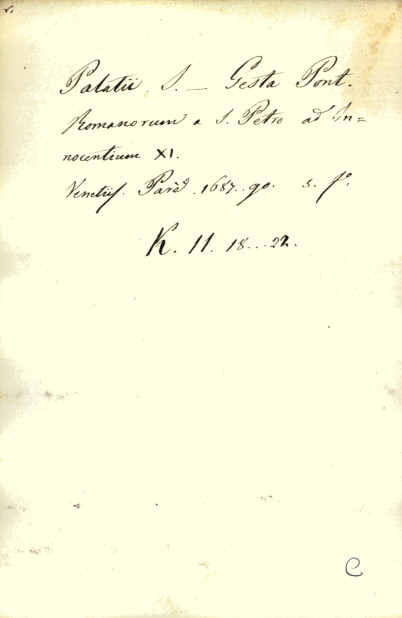 Palatii S. — Gesta Pont.
Romanorum a S. Petro ad In=
nocentium XI.
Venetiis. Paré. 1687..90. 5. f°.
K. 11. 18...22.
C